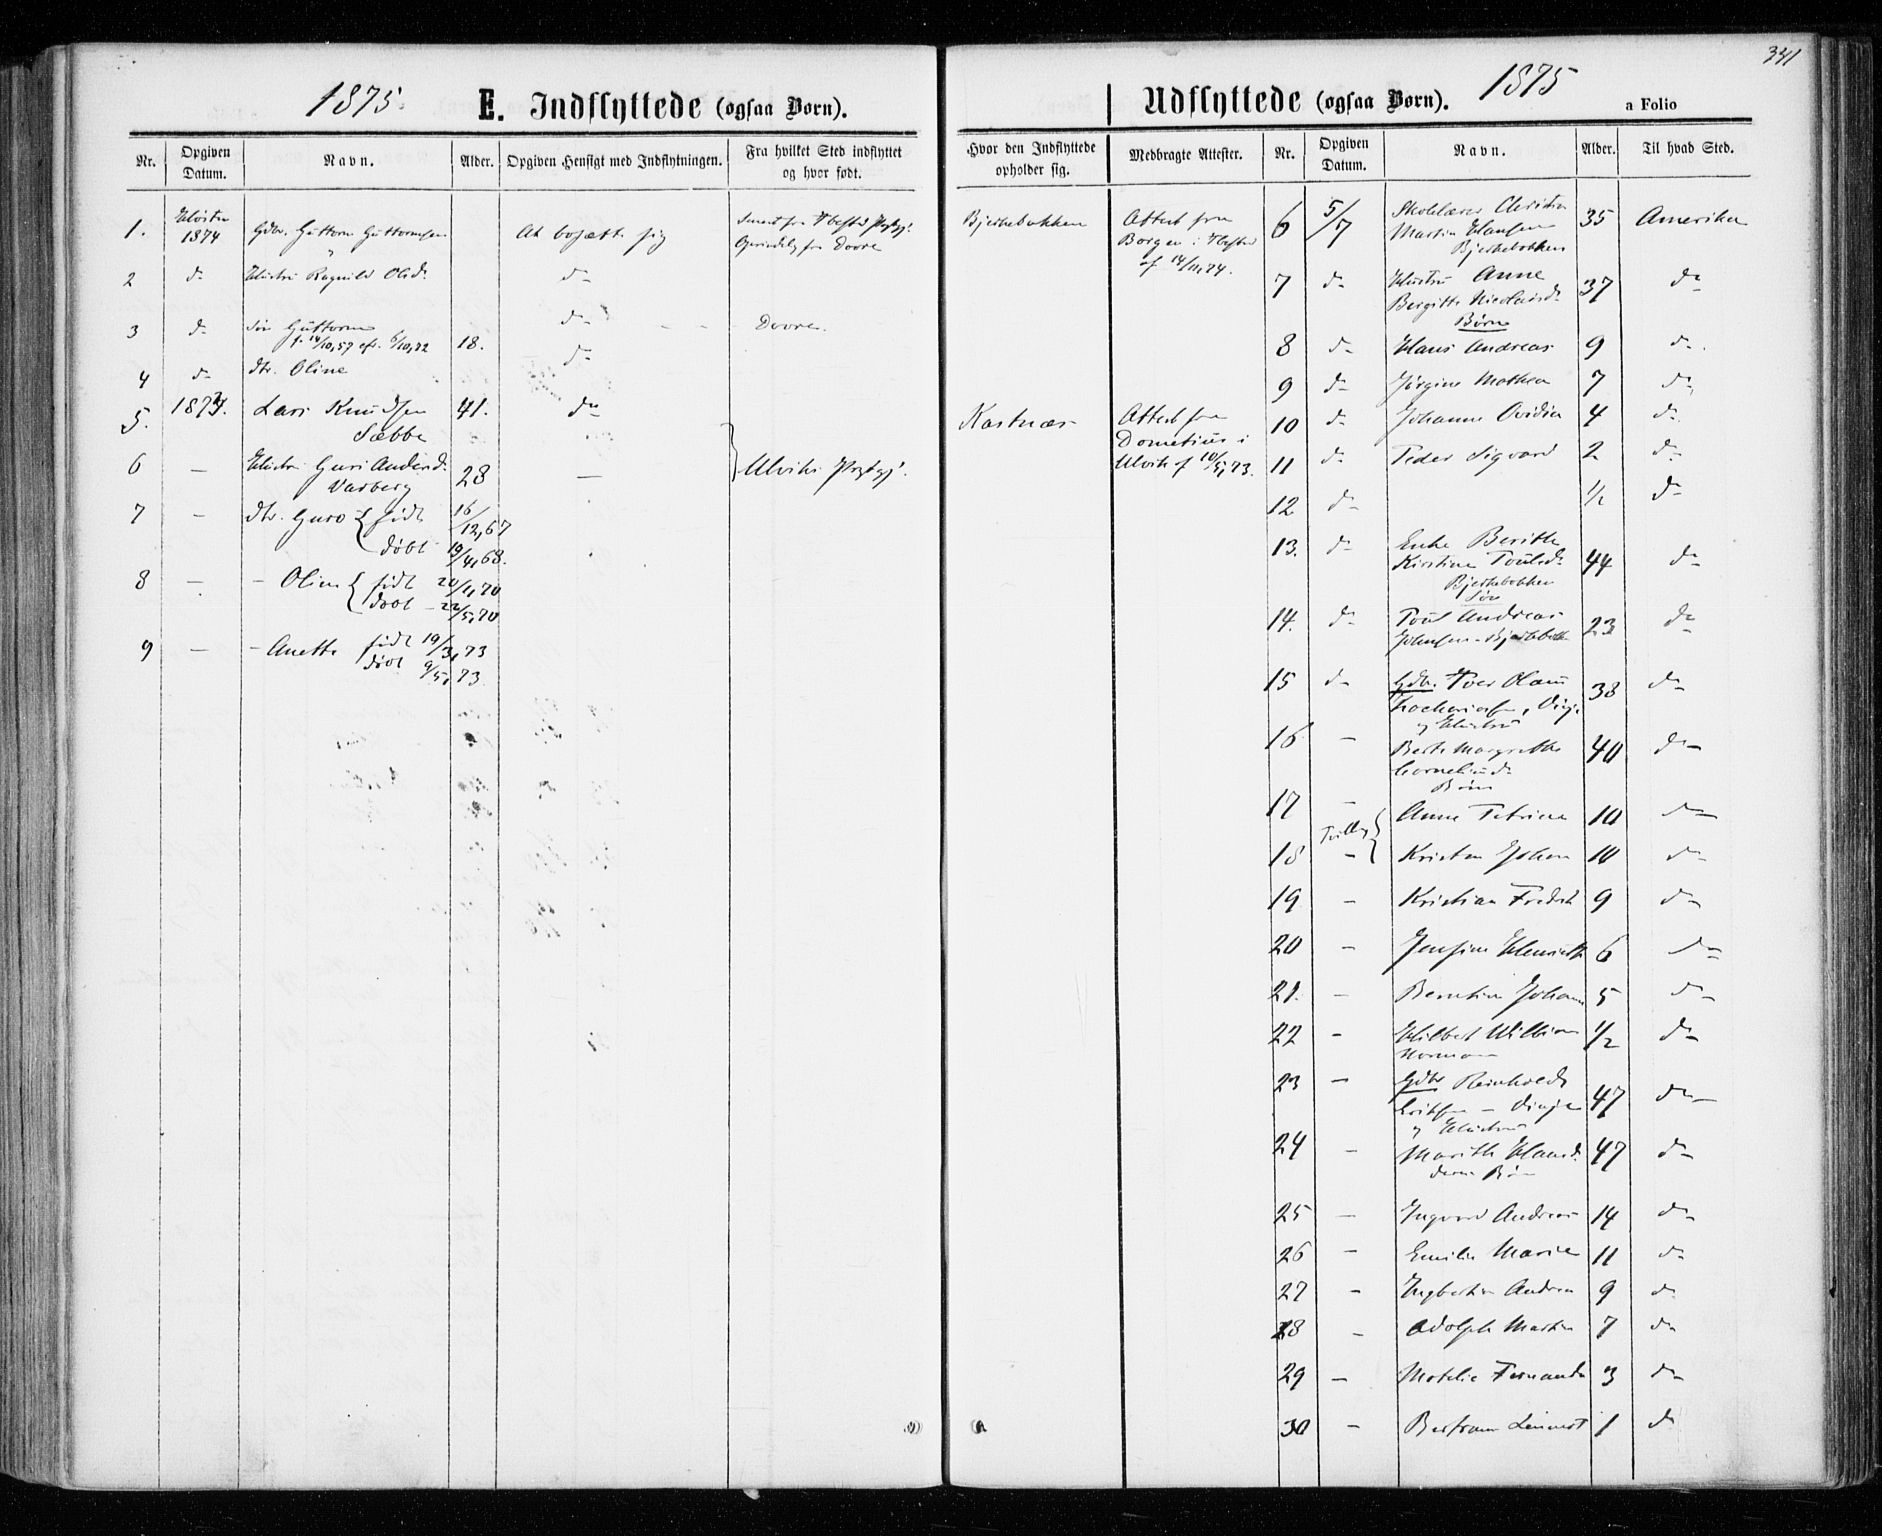 341
1875.
E. Indflyttede (ogsaa Børn).
Udflyttede (ogsaa Børn).
1875
a Folio
Nr.
Opgiven Datum.
Navn.
Alder.
Opgiven Hensigt med Indflytningen.
Fra hvilket Sted indflyttet og hvor født.
Hvor den Indflyttede opholder sig.
Medbragte Attester.
Nr.
Opgiven Datum.
Navn.
Alder.
Til hvad Sted.
1.
1874
Gdbr. Guttorm Guttormsen
At bosætte sig
Senest fra Ibestad Prgj.
Oprindelig fra Dovre
Bjerkebakken
Attest fra
Borgen i Ibestad
af 14/11,74.
2 do Hustru Ragnild Olsd. do
3 do Søn Guttorm do Dovre.
f. 14/10,57 18.
4 do dtr. Oline do
5. 1873. Lars Knudsen 41. do Kastnæs Attest fra
Sæbbe
Dometius i
Ulvik af 10/5,73.
6 — Hustru Guri Andersd. 28 — Ulviks Prgj.
Varberg
7 — dtr. Guro { født 16/12,67
døbt 19/4,68.
8 — - Oline { født 20/4,70
døbt - 22/5,70
9 — - Anette født 19/3,73
døbt 9/5,73
6 5/7 Skolelærer Christian 35 Amerika
Martin Hansen
Bjerkebakken
7 do Hustru Anne 37 do
Bergitte Nicolaisd.
Børn
8 do Hans Andreas 9 do
9 do Jørgine Mathea 7 do
10 do Johanne Ovidia 4 do
11 do Peder Sigvard 2 do
12 do ½ do
13. do Enke Berithe 44 do
Kirstine Poulsd.
Bjerkebakken
Søn
14. do Poul Andreas 23 do
Johnsen - Bjerkebakken
15 do Gdbr. Iver Olaus 38 do
Zachariasen,
og Hustru
16 — Berit Margrethe 40 do
Corneliusd.
Børn
17 — Anne Petrine 10 do
Tvilling
18 — Kristen Johan 10 do
19 — Kristian Fredrik 9 do
20 — Jensine Henriette 6 do
21. — Berntine Johanna 5 do
22 — Hilbert William ½ do
Norman
23 — Gdbr Reinholdt 47 do
Eriksen -
og Hustru
24 — Marith Hansd. 47 do
deres Børn
25 — Ingvard Andreas 14 do
26 — Emilie Marie 11 do
27 — Ingbertine Andrea 9 do
28 — Adolph Martin 7 do
29 — Matelie Fernanda 3 do
30 — Bertram Lennert 1 do